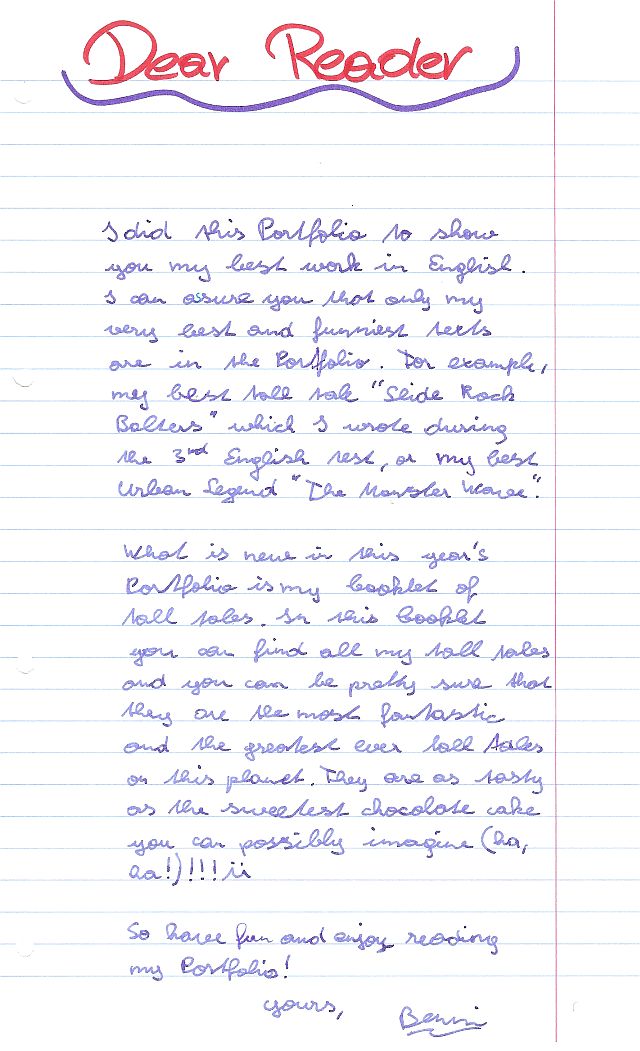 Dear Reader
I did this Portfolio to show
you my best work in English.
I can assure you that only my
very best and funniest texts
are in the Portfolio. For example,
my best tall tale "Slide Rock
Bolters" which I wrote during
the 3rd English test, or my best
Urban Legend "The Monster Wave".
What is new in this year's
Portfolio is my booklet of
tall tales. In this booklet
you can find all my tall tales
and you can be pretty sure that
they are the most fantastic
and the greatest ever tall tales
on this planet. They are as tasty
as the sweetest chocolate cake
you can possibly imagine (ha,
ha!)!!!¡¡
So have fun and enjoy reading
my Portfolio!
yours,
Benni